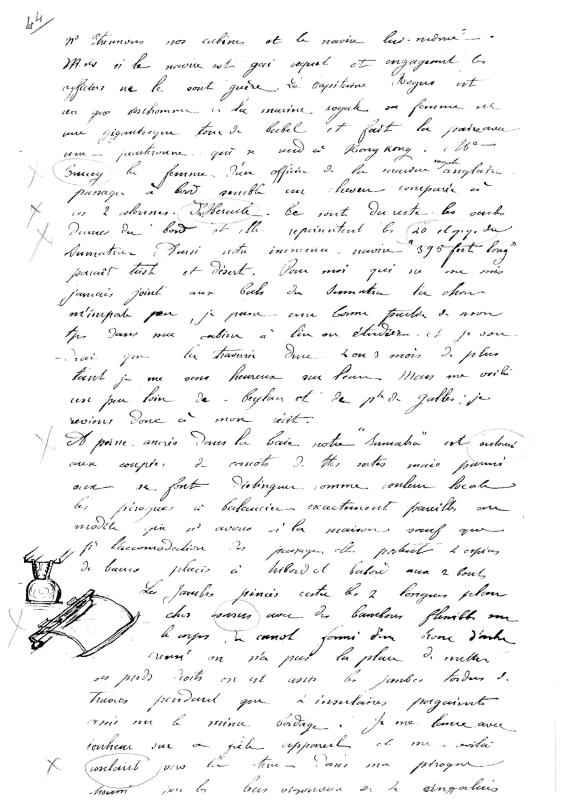 44
n' étrennons nos cabines et le navire lui-même.
Mais si le navire est gai coquet et engageant les
officiers ne le sont guère. Le capitaine est
un gros bonhomme de la marine royale sa femme est
une gigantesque tour de babel et fait la paire avec
une qui se rend à Hong Kong. Me
la femme d'un officier de la marine royale anglaise
passager à bord semble un cheveu comparée à
ces 2 colonnes d'Hercule. Ce sont du reste les seules
dames du bord et elles représentent les 20 et qq. du
Sumatra. Aussi notre immense navire "395 feet long"
paraît triste et désert. Pour moi qui ne me suis
jamais joint aux bals du Sumatra la chose
m'importe peu, je passe une bonne partie de mon
tps dans ma cabine à lire ou étudier et je
drais que la traversée dure 2 ou 3 mois de plus
tant je me sens heureux sur l'eau. Mais me voilà
un peu loin de Ceylan et de pte de Galles; je
reviens donc à mon récit.
A peine ancrés dans la baie notre "Sumatra" est entouré
de canots de ttes sortes mais parmi
eux se font distinguer comme couleur locale
les pirogues à balancier exactement pareilles au
modèle que ns avons à la maison sauf que
pr l'accomodation des passagers elle portent 2 espèces
de bancs placés à tribord et babord aux 2 bouts
Les jambes pincées entre les 2 longues planches
avec des bambous flexibles sur
le corps du canot formé d'un tronc d'arbre
creusé on n'a pas la place de mettre
ses pieds droits on est assis les jambes tordues de
travers pendant que 2 insulaires pagaient
assis sur le même bordage. Je me lance avec
bonheur sur ce frêle appareil et me voilà
voguant vers la terre dans ma pirogue
par les bras vigoureux de 2 singalais